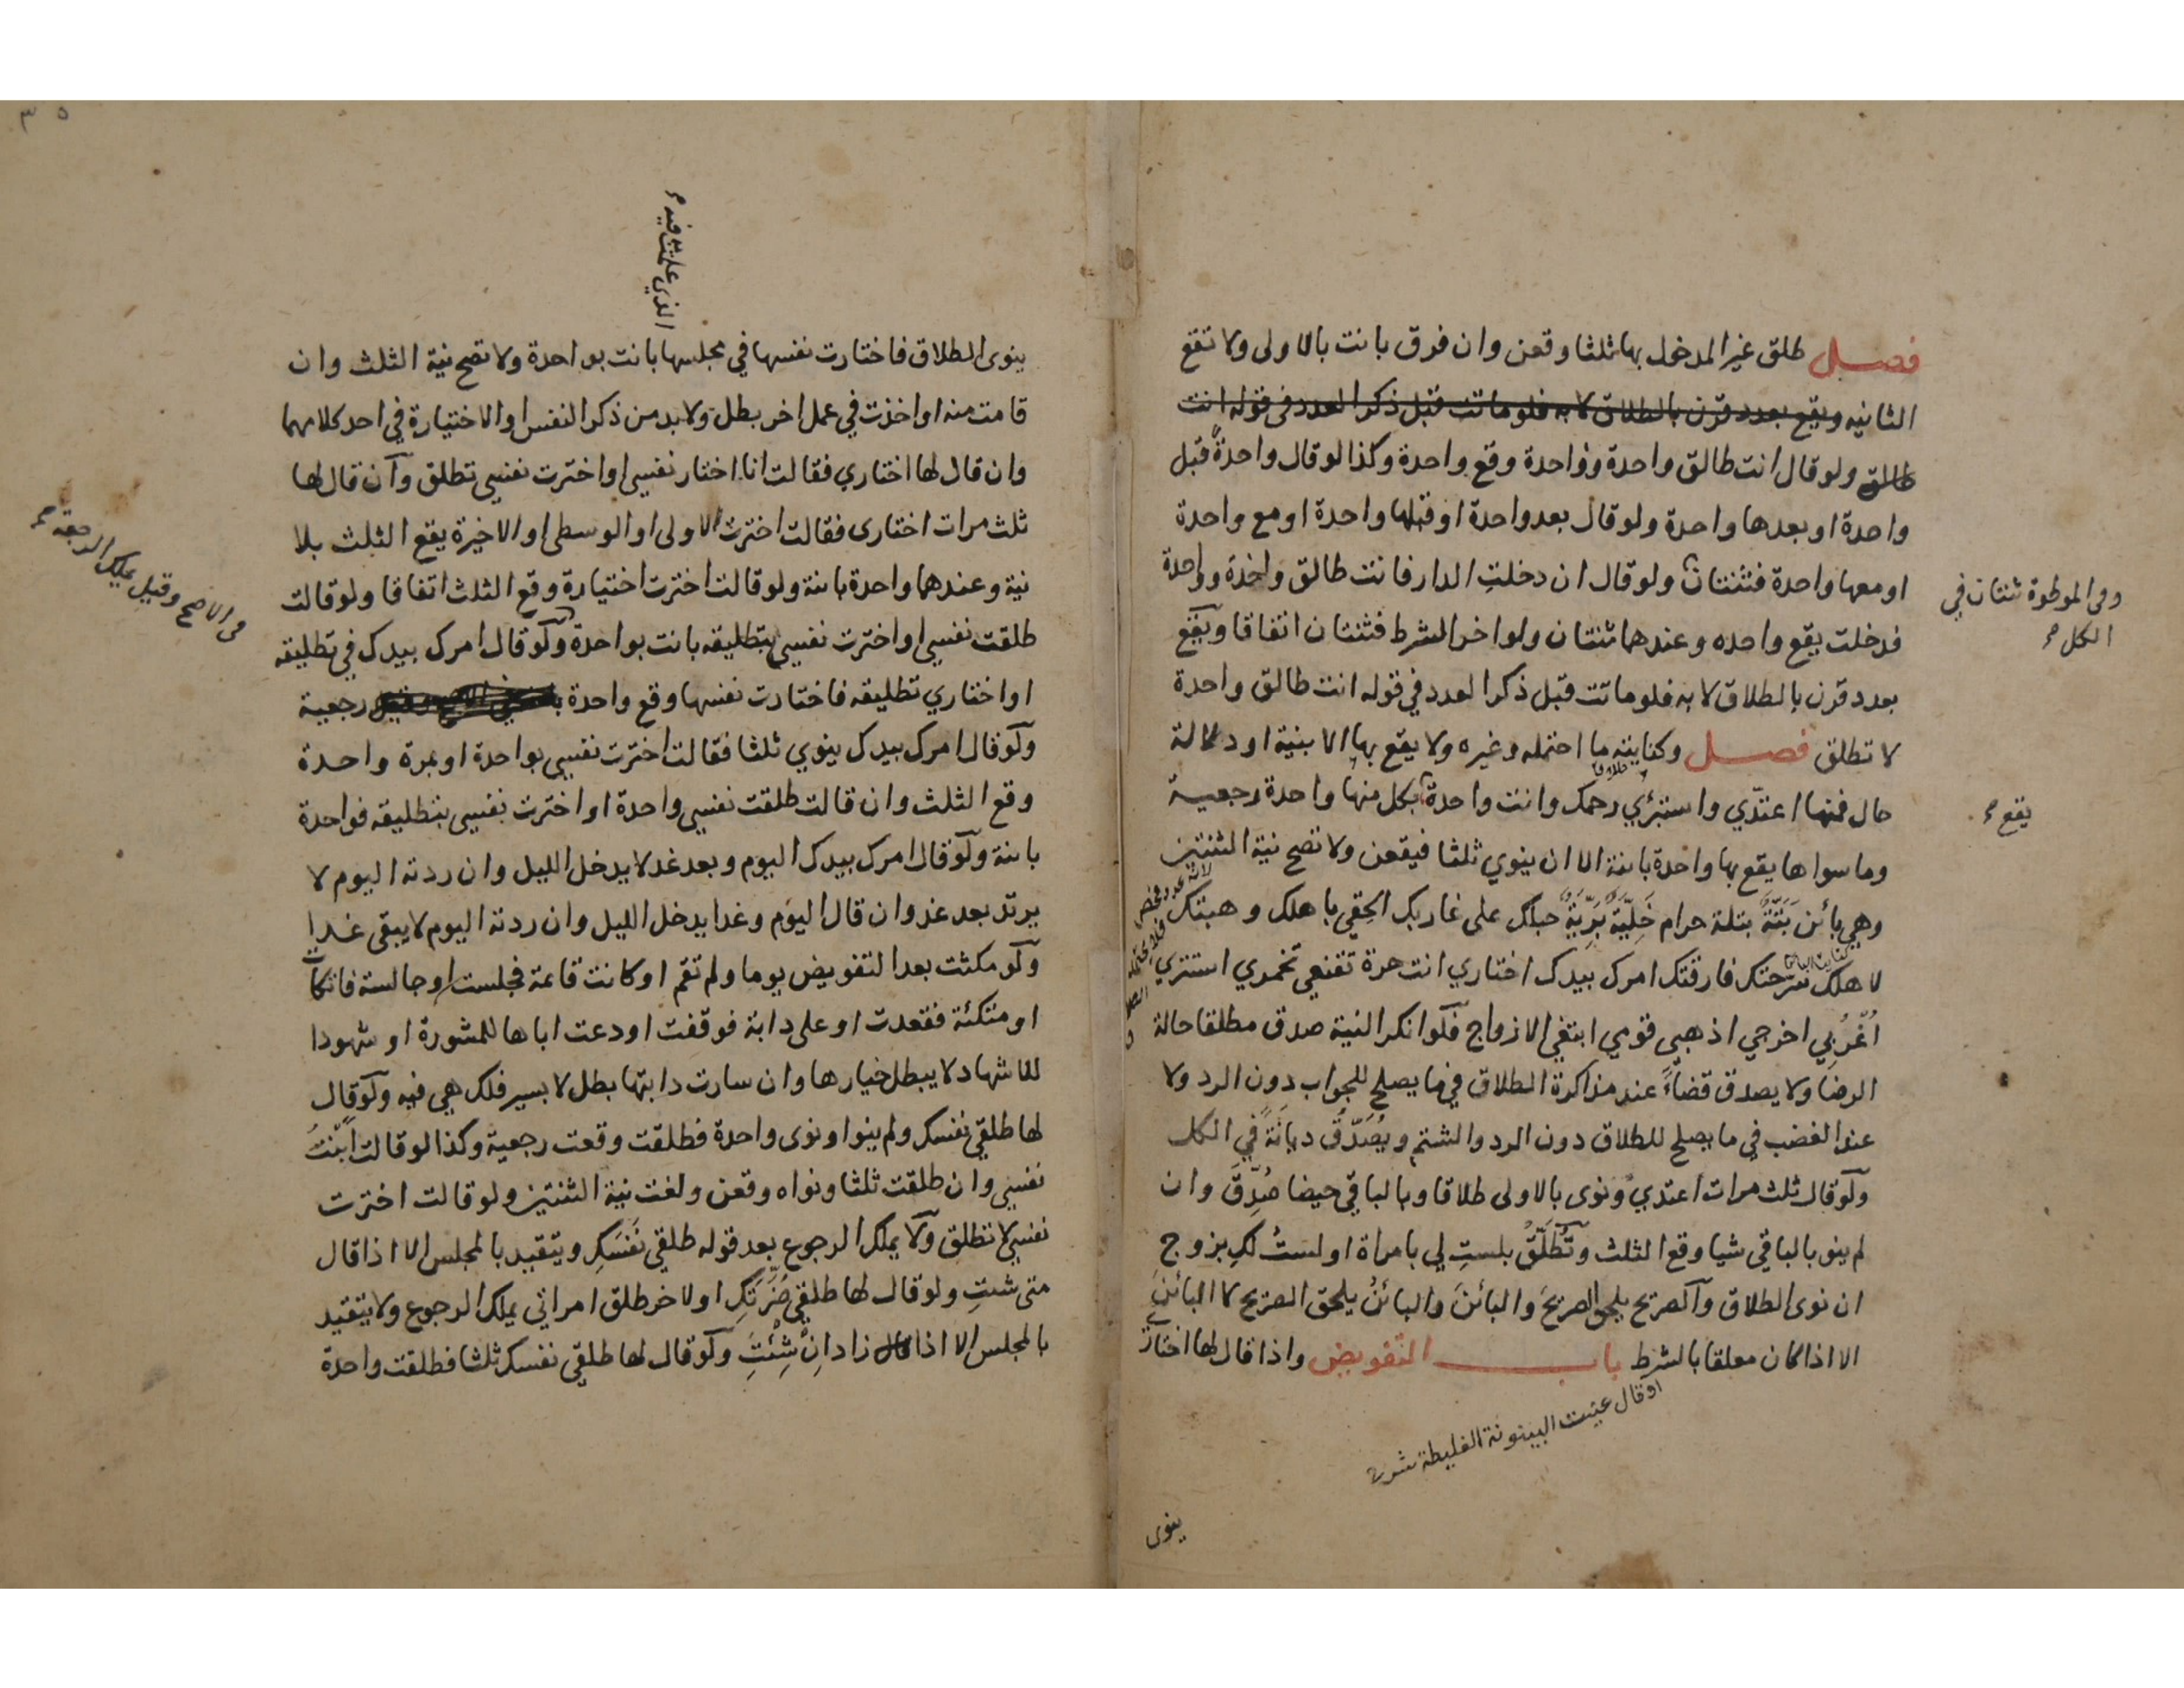 فصل طلق غير المدخول بها ثلثا وقعن وان فرق بانت بالاولى ولا تقع
الثانيه ويقع بعدد قرن بالطلاق لا به فلو ماتت قبل ذكر العدد في قوله انت
طالق ولو قال انت طالق واحدة وواحدة وقع واحدة وكذا لو قال واحدةً قبل
واحدة او بعدها واحدة ولو قال بعد واحدة او قبلها واحدة او مع واحدة
او معها واحدة فثنتان ولو قال ان دخلتِ الدار فانت طالق واحدة وواحدة
وفي الموطوة ثنتان في
الكل م
فدخلت يقع واحده وعندهما ثنتان ولو اخر الشرط فثنتان اتفاقا ويقع
بعدد قرن بالطلاق لا به فلو ماتت قبل ذكر العدد في قوله انت طالق واحدة
لا تطلق فصل وكنايته ما احتمله وغيره ولا يقع بها الا بنية او دلالة
حال فمنها اعتدّي واستبرئي رحمك وانت واحدة بكل منها واحدة رجعية
يقع م
وما سواها يقع بها واحدة بائنة الا ان ينوي ثلثا فيقعن ولا تصح نية الثنتين
وهي بائن بَتّةٌ بتلة حرام خَلِيّةٌ بَرِيّةٌ حبلك على غاربك الحقِي باهلك وهبتك
لاهلك سَرّحتك فارقتك امرك بيدك اختاري انت حرة تقنعي تخمري استتري
اُغْرُبِي اخرجي اذهبي قومي ابتغي الازواج فلو انكر النية صدق مطلقا حالة
الرضا ولا يصدق قضاءً عند مذاكرة الطلاق فيما يصلح للجواب دون الرد ولا
عند الغضب في ما يصلح للطلاق دون الرد والشتم ويُصَدَّق ديانَةً في الكل
ولو قال ثلث مرات اعتدي ونوى بالاولى طلاقا وبالباقي حيضا صُدِّقَ وان
لم ينو بالباقي شيا وقع الثلث وتُطَلَّقُ بلستِ لي بامراة او لستُ لكِ بزوج
ان نوى الطلاق والصريح يلحق الصريحَ والبائنَ والبائنُ يلحق الصريح لا البائنَ
الا اذا كان معلقا بالشرط باب التفويض واذا قال لها اختاري
او قال عنيت البينونة الغليظة
ينوى
٣٥
الذي علمت فيه م
ينوى الطلاق فاختارت نفسها في مجلسها بانت بواحدة ولا تصح نية الثلث وان
قامت منه او اخذت في عمل اخر بطل ولا بد من ذكر النفس او الاختيارة في احد كلامهما
وان قال لها اختاري فقالت انا اختار نفسي او اخترت نفسي تطلق وان قال لها
ثلث مرات اختارى فقالت اخترت الاولى او الوسطى او الاخيرة يقع الثلث بلا
نية وعندهما واحدة بائنة ولو قالت اخترت اختيارة وقع الثلث اتفاقا ولو قالت
طلقت نفسي او اخترت نفسي بتطليقه بانت بواحدة ولو قال امرك بيدك في تطليقه
في الاصح وقيل يملك الرجعة م
او اختاري تطليقه فاختارت نفسها وقع واحدة رجعية
ولو قال امرك بيدك ينوي ثلثا فقالت اخترت نفسي بواحدة او بمرة واحدة
وقع الثلث وان قالت طلقت نفسي واحدة او اخترت نفسي بتطليقه فواحدة
بائنة ولو قال امرك بيدك اليوم وبعد غد لا يدخل الليل وان ردته اليوم لا
يرتد بعد غد وان قال اليوم وغدا يدخل الليل وان ردته اليوم لا يبقى غدا
ولو مكثت بعد التفويض يوما ولم تقم او كانت قاعدة فجلست او جالسة فاتكأت
او متكئة فقعدت او على دابة فوقفت او دعت اباها للمشورة او شهودا
للاشهاد لا يبطل خيارها وان سارت دابتها بطل لا بسير فلك هي فيه ولو قال
لها طلقي نفسك ولم ينو او نوى واحدة فطلقت وقعت رجعية وكذا لو قالت ابَنْتُ
نفسي وان طلقت ثلثا ونواه وقعن ولغت نية الثنتين ولو قالت اخترت
نفسي لا تطلق ولا يملك الرجوع بعد قوله طلقي نَفْسَكِ ويتقيد بالمجلس الا اذا قال
متى شئتِ ولو قال لها طلقي ضَرّتَكِ او لاخر طلق امراتي يملك الرجوع ولا يتقيد
بالمجلس الا اذا قال زاد اِنْ شِئْتَ ولو قال لها طلقي نفسك ثلثا فطلقت واحدة